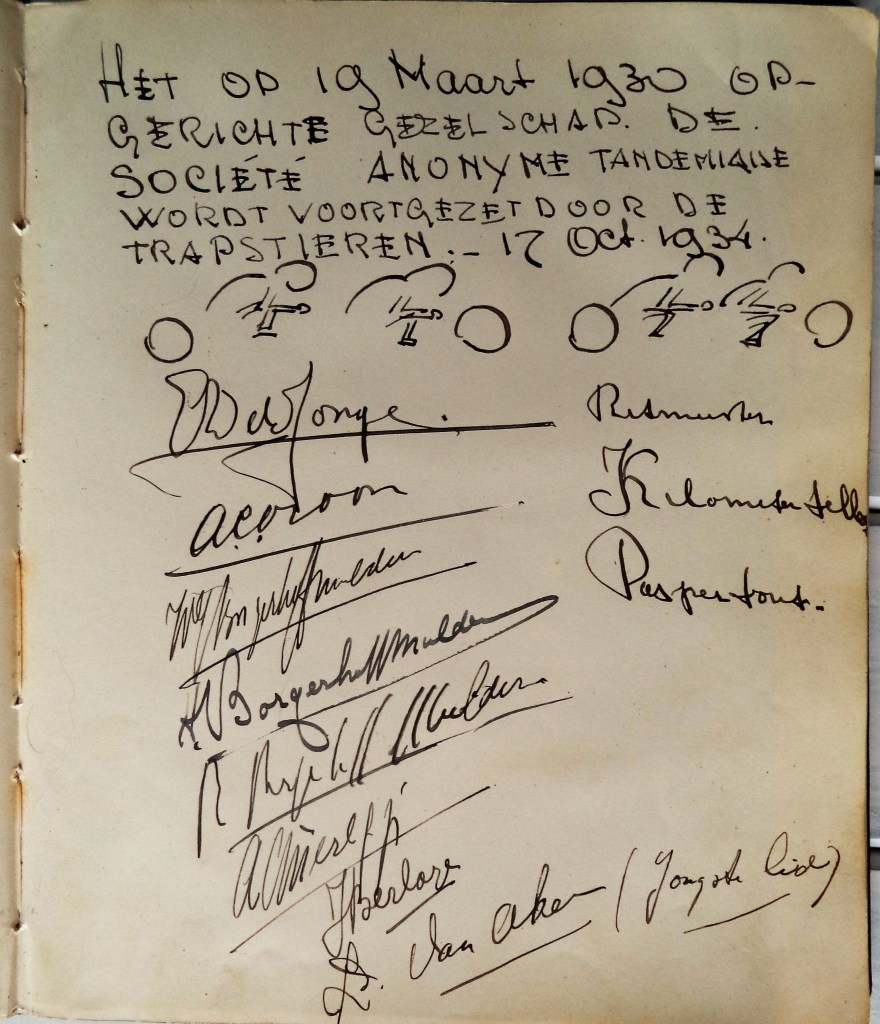 HET OP 19 Maart 1930 OP-
GERICHTE GEZELSCHAP. DE.
SOCIÉTÉ ANONYME TANDEMIQUE
WORDT VOORTGEZET DOOR DE
TRAPSTIEREN :- 17 Oct. 1934.
de Jonge. Ritmeester
Kilometerteller
Borgerhoff Mulder
Paspertout.
A. Borgerhoff Mulder
R Borgerhoff Mulder.
Van Aken (Jongste lid)